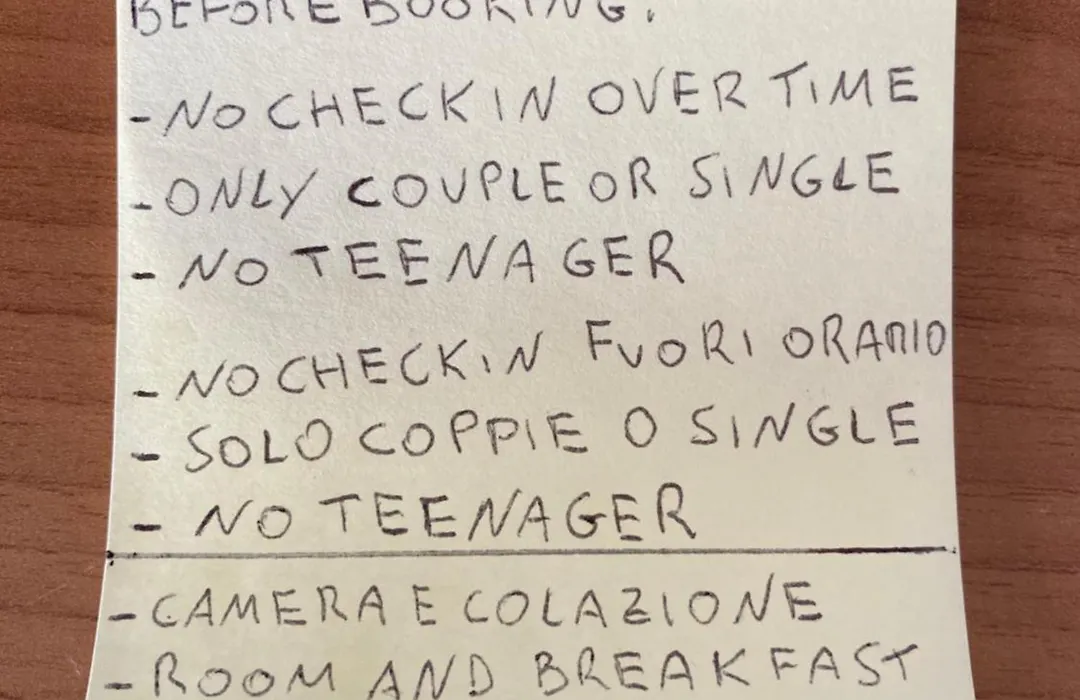 BEFORE BOOKING.
- NO CHECK IN OVER TIME
- ONLY COUPLE OR SINGLE
- NO TEENAGER
- NO CHECK IN FUORI ORARIO
- SOLO COPPIE O SINGLE
- NO TEENAGER
- CAMERA E COLAZIONE
- ROOM AND BREAKFAST